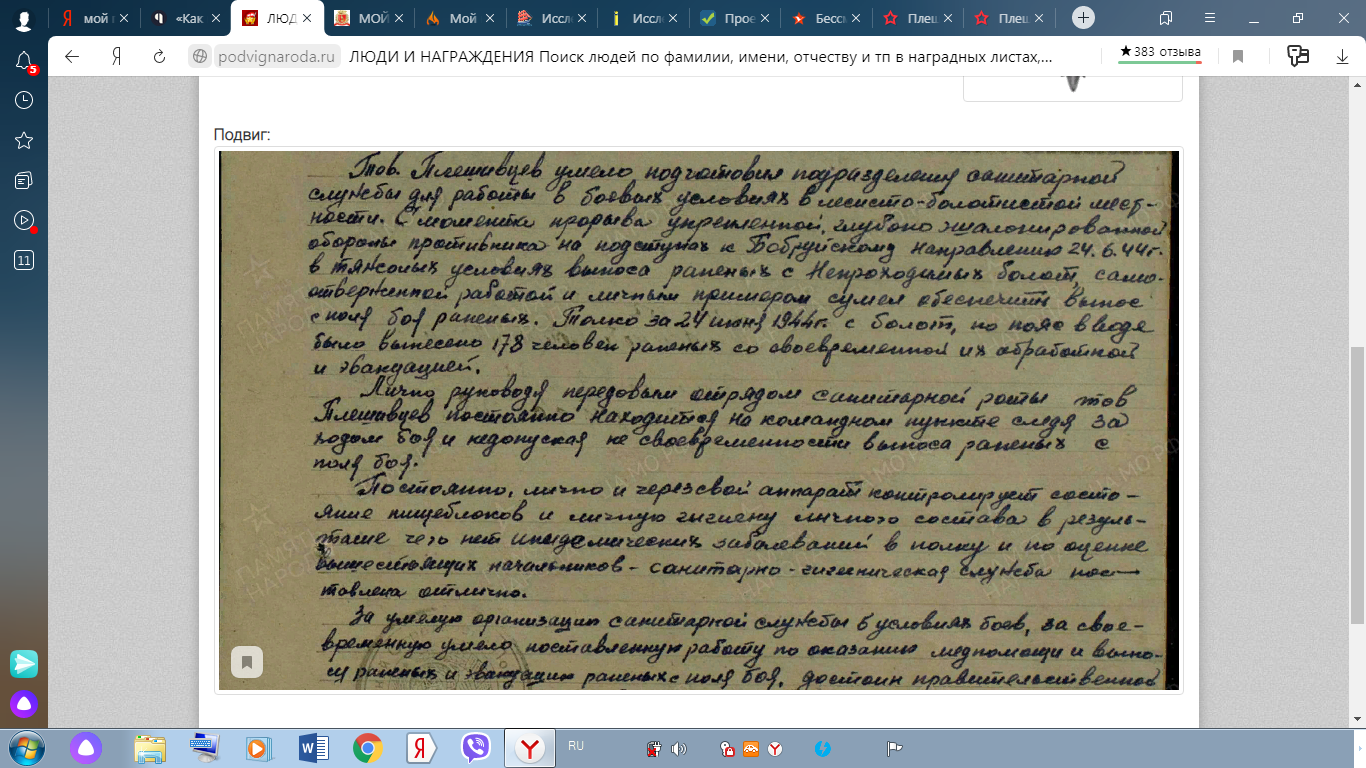 Я мой
«Как
ЛЮД
МОЙ
Мой
Иссл
Иссл
Прое
Бессм
Плец
Плец
podvignaroda.ru ЛЮДИ И НАГРАЖДЕНИЯ Поиск людей по фамилии, имени, отчеству и тп в наградных листах,...
★383 отзыва
5
11
Подвиг:
Тов. Плешивцев умело подготовил подразделения санитарной
службы для работы в боевых условиях в лесисто-болотистой мест-
ности. С момента прорыва укрепленной, глубоко эшалонированной
обороны противника на подступах к Бобруйскому направлению 24.6.44г.
в тяжолых условиях выноса раненых с Непроходимых болот, само-
отверженной работой и личным примером сумел обеспечить вынос
с поля боя раненых. Толко за 24 июня 1944г. с болот, по пояс в воде
было вынесено 178 человек раненых со своевременной их обработкой
и эвакуацией.
Лично руководя передовым отрядом санитарной роты тов
Плешивцев постоянно находится на командном пункте следя за
ходом боя и недопуская не своевременности выноса раненых с
поля боя.
Постоянно, лично и через свой аппарат контролирует состо-
яние пищеблоков и личную гигиену личного состава в резуль-
тате чего нет эпидемических заболеваний в полку и по оценке
вышестоящих начальников - санитарно-гигиеническая служба пос-
тавлена отлично.
За умелую организацию санитарной службы в условиях боев, за свое-
временную умело поставленную работу по оказанию медпомощи и выно-
су раненых и эвакуацию раненых с поля боя, достоин правительственной
RU